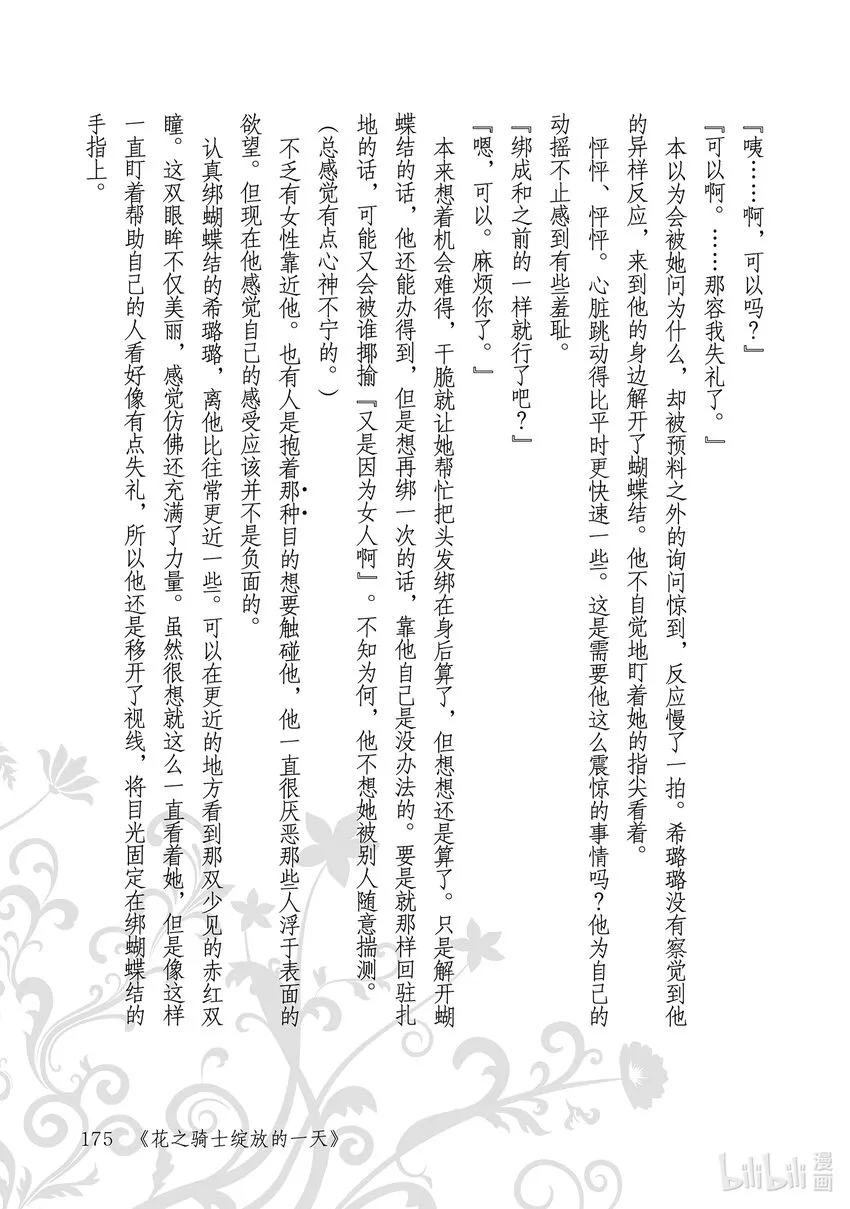 『咦……啊，可以吗？』
『可以啊。……那容我失礼了。』
本以为会被她问为什么，却被预料之外的询问惊到，反应慢了一拍。希璐璐没有察觉到他
的异样反应，来到他的身边解开了蝴蝶结。他不自觉地盯着她的指尖看着。
怦怦、怦怦。心脏跳动得比平时更快速一些。这是需要他这么震惊的事情吗？他为自己的
动摇不止感到有些羞耻。
『绑成和之前的一样就行了吧？』
『嗯，可以。麻烦你了。』
本来想着机会难得，干脆就让她帮忙把头发绑在身后算了，但想想还是算了。只是解开蝴
蝶结的话，他还能办得到，但是想再绑一次的话，靠他自己是没办法的。要是就那样回驻扎
地的话，可能又会被谁揶揄『又是因为女人啊』。不知为何，他不想她被别人随意揣测。
（总感觉有点心神不宁的。）
不乏有女性靠近他。也有人是抱着那种目的想要触碰他，他一直很厌恶那些人浮于表面的
欲望。但现在他感觉自己的感受应该并不是负面的。
认真绑蝴蝶结的希璐璐，离他比往常更近一些。可以在更近的地方看到那双少见的赤红双
瞳。这双眼眸不仅美丽，感觉仿佛还充满了力量。虽然很想就这么一直看着她，但是像这样
一直盯着帮助自己的人看好像有点失礼，所以他还是移开了视线，将目光固定在绑蝴蝶结的
手指上。
175 《花之骑士绽放的一天》
bilibili 漫画